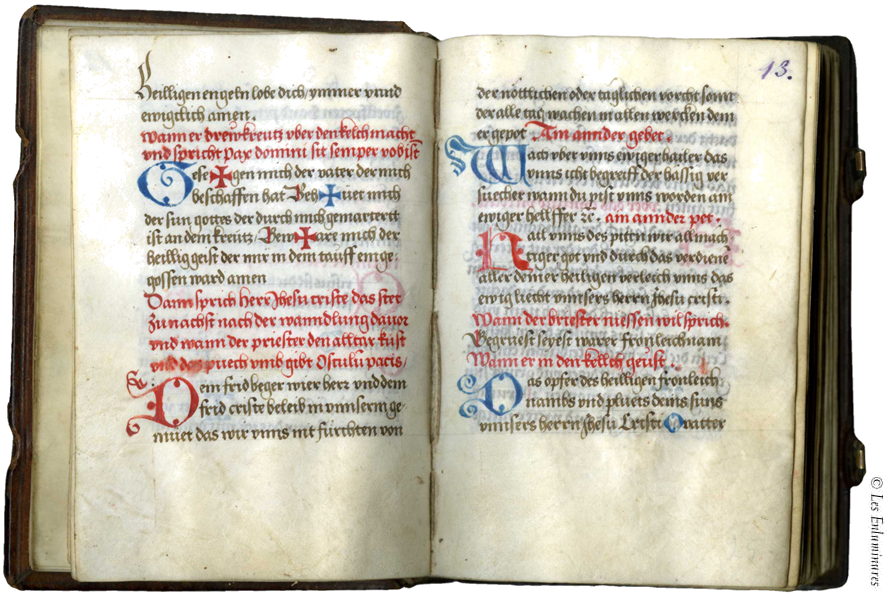 heilligen engeln lobe dich ymmer vnnd
ewigclich amen.
wann er drew kreutz vber den kelch macht
vnd spricht Pax domini sit semper vobist
Gese✠gen mich der vater der mich
beschaffen hat Beh✠uet mich
der sun gottes der durch mich gemartertt
ist an dem kreutz Bew✠are mich der
heillig geist der mir in dem tauff ein ge-
gossen ward amen
Dann sprich herr Jhesu criste das stet
zu nachst nach der wanndlung dauor
vnd wann der priester den alltar kust
vnd das puech vmb gibt Osculu pacis
Dein frid beger wier herr vnd dem
frid criste beleib in vnnserm ge-
muet das wir vnns nit fürchten von
13.
der nöttlichen oder täglichen vorcht sonn
der alle tag wachen in allen wercken dein
er gepot. Am annder gebet.
Wach vber vnns ewiger hailer das
vnns icht begreiff der hässig ver
suecher wann du pist vnns worden am
ewiger hellffer ꝛc. am annder pet.
Nall vnns des pittn wir allmäch
tiger got vnd durch das verdiene
aller deiner heiligen verleich vnns das
ewig liecht vnnsers herrn Jhesu cristi.
Wann der briester niessen wil sprich.
Begruest seyest warer fronleichnam
Wann er in den kellch geust.
Das opfer des heiligen fronleich
nambs vnd pluets deins suns
vnnsers herrn Jhesu Cristi O vatter
© Les Enluminures